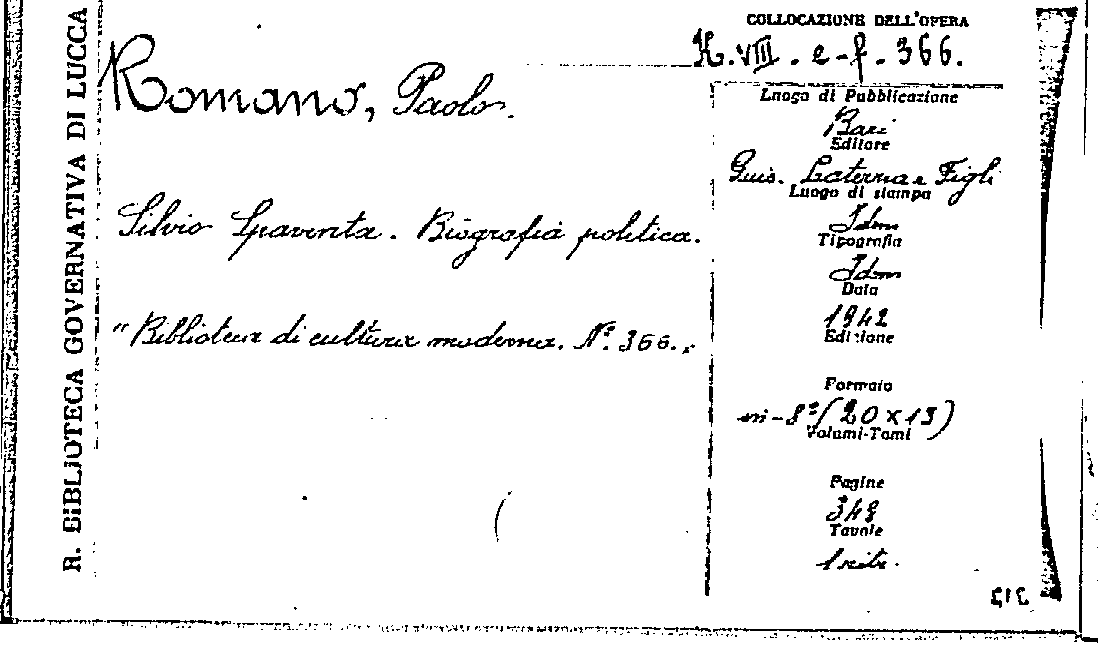 R. BIBLIOTECA GOVERNATIVA DI LUCCA
COLLOCAZIONE DELL'OPERA
K. VIII. e-f. 366.
Romano, Paolo.
Silvio Spaventa. Biografia politica.
"Biblioteca di cultura moderna. N.º 366."
Luogo di Pubblicazione
Bari
Editore
Gius. Laterza e Figli
Luogo di stampa
Idm
Tipografia
Idm
Data
1942
Edizione
Formato
in-8º (20 x 13)
Volumi-Tomi
Pagine
Tavole
1 ritr.